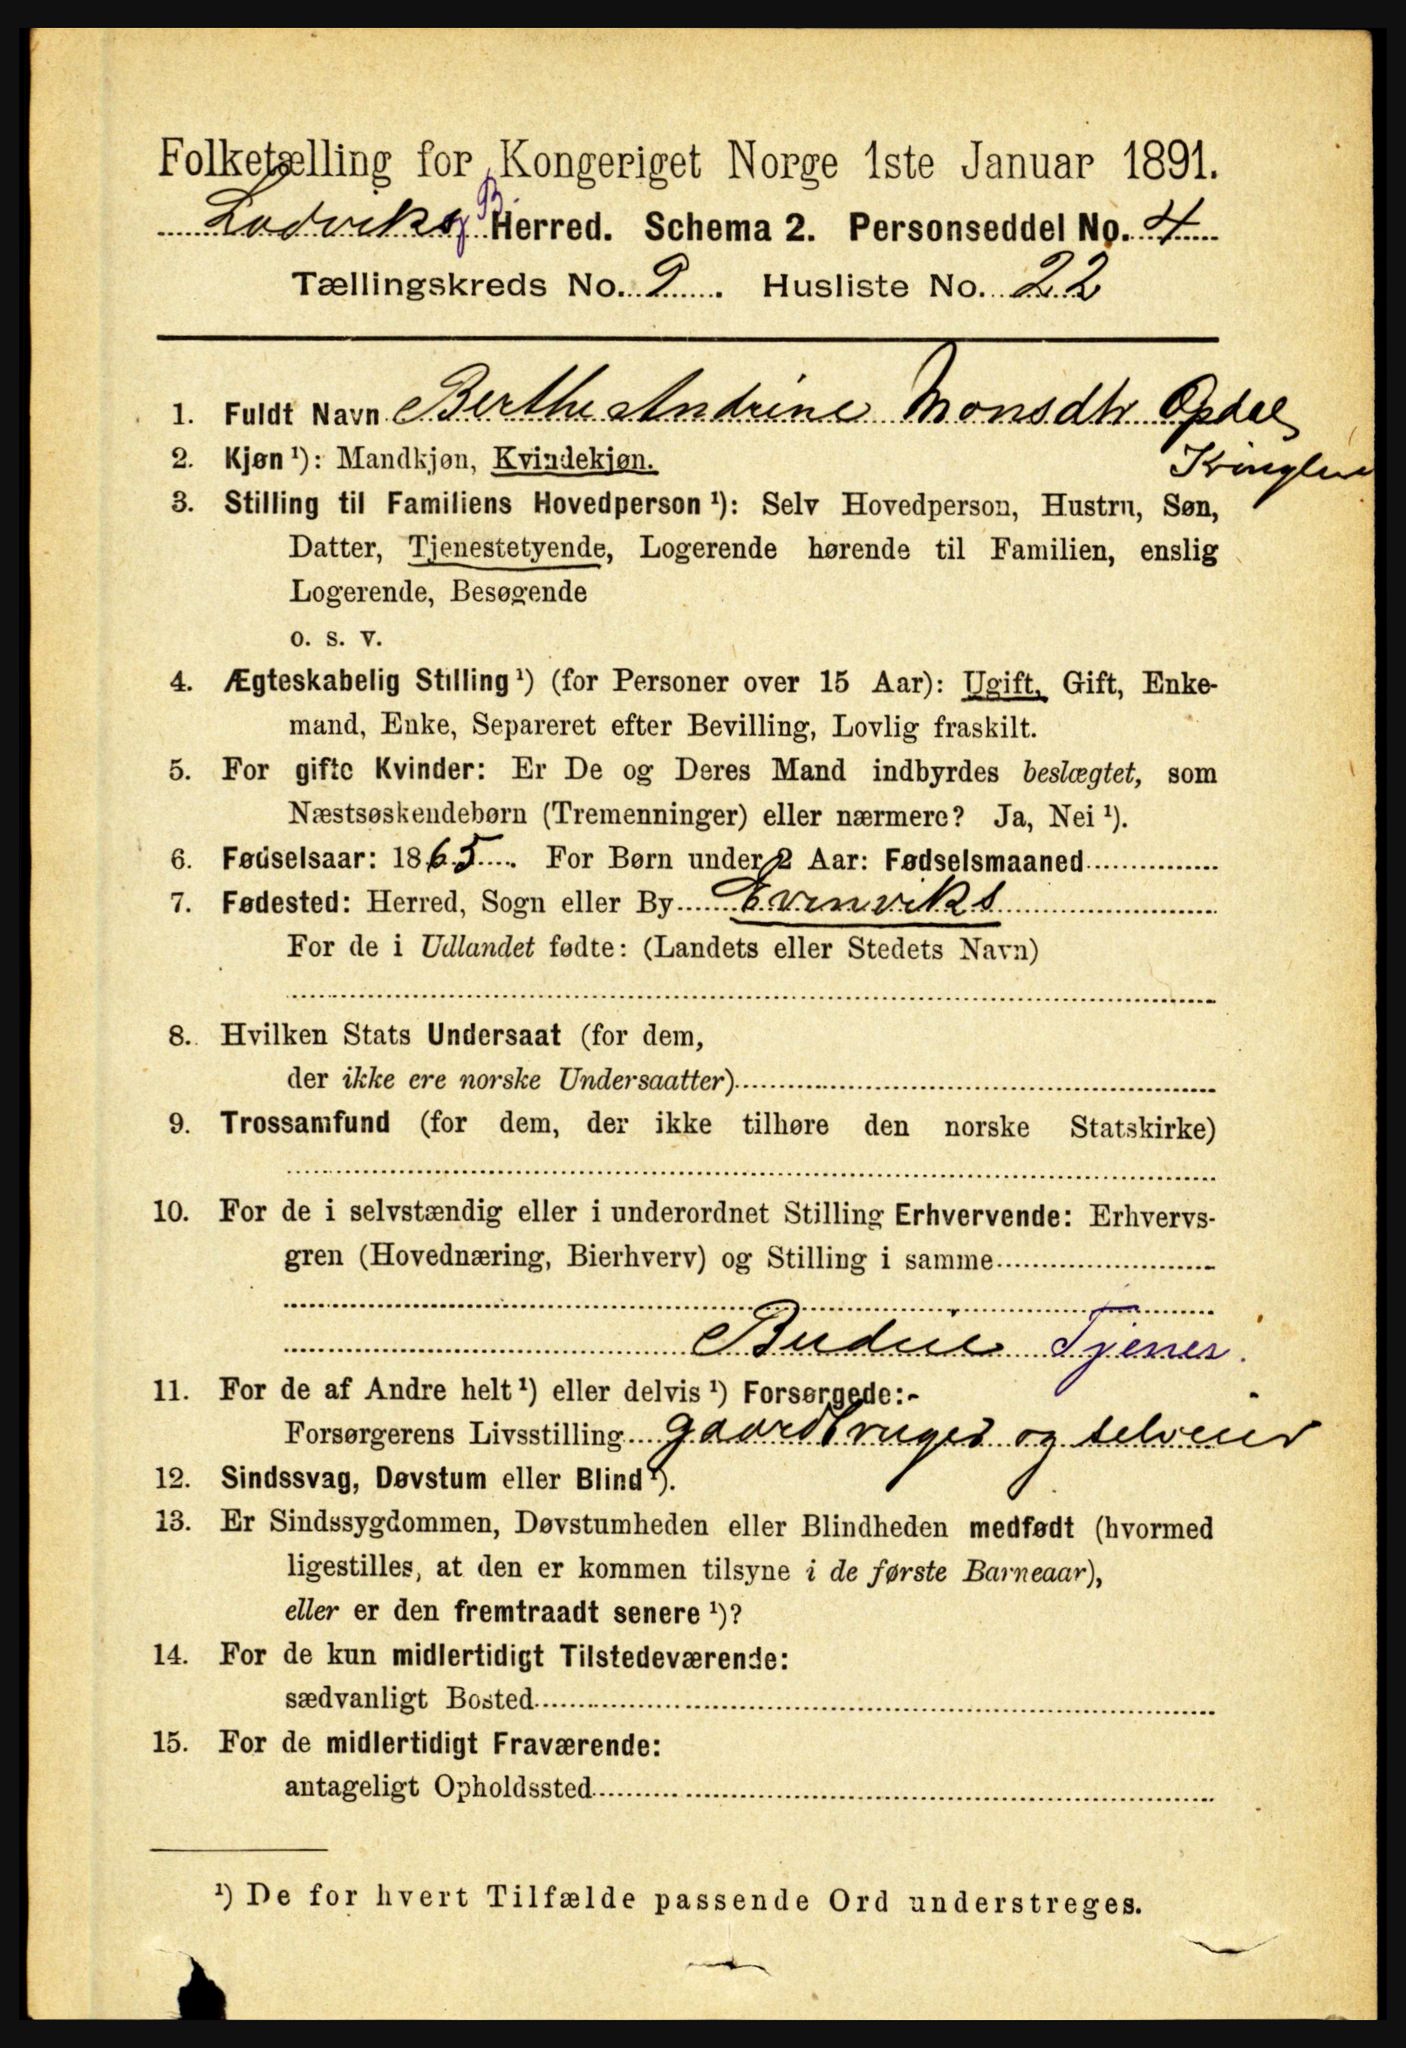 Folketælling for Kongeriget Norge 1ste Januar 1891.
Ladviks Herred. Schema 2. Personseddel No. 4
Tællingskreds No. 9. Husliste No. 22
1. Fuldt Navn Berthe Andrine Monsdtr Opdal
2. Kjøn ¹): Mandkjøn, Kvindekjøn.
3. Stilling til Familiens Hovedperson ¹): Selv Hovedperson, Hustru, Søn,
Datter, Tjenestetyende, Logerende hørende til Familien, enslig
Logerende, Besøgende
o. s. v.
4. Ægteskabelig Stilling ¹) (for Personer over 15 Aar): Ugift, Gift, Enke-
mand, Enke, Separeret efter Bevilling, Lovlig fraskilt.
5. For gifte Kvinder: Er De og Deres Mand indbyrdes beslægtet, som
Næstsøskendebørn (Tremenninger) eller nærmere? Ja, Nei ¹).
6. Fødselsaar: 1865. For Børn under 2 Aar: Fødselsmaaned
7. Fødested: Herred, Sogn eller By Evenviks
For de i Udlandet fødte: (Landets eller Stedets Navn)
8. Hvilken Stats Undersaat (for dem,
der ikke ere norske Undersaatter)
9. Trossamfund (for dem, der ikke tilhøre den norske Statskirke)
10. For de i selvstændig eller i underordnet Stilling Erhvervende: Erhvervs-
gren (Hovednæring, Bierhverv) og Stilling i samme
Budeie Tjener.
11. For de af Andre helt ¹) eller delvis ¹) Forsørgede:-
Forsørgerens Livsstilling gaardbruger og selveier
12. Sindssvag, Døvstum eller Blind ¹).
13. Er Sindssygdommen, Døvstumheden eller Blindheden medfødt (hvormed
ligestilles, at den er kommen tilsyne i de første Barneaar),
eller er den fremtraadt senere ¹)?
14. For de kun midlertidigt Tilstedeværende:
sædvanligt Bosted
15. For de midlertidigt Fraværende:
antageligt Opholdssted
¹) De for hvert Tilfælde passende Ord understreges.